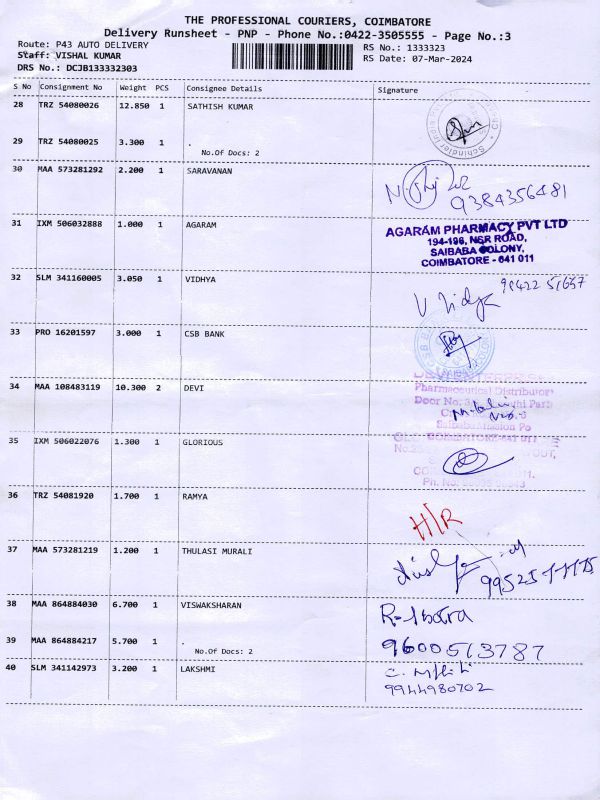 THE PROFESSIONAL COURIERS, COIMBATORE
Delivery Runsheet - PNP - Phone No.:0422-3505555 - Page No.:3
Route: P43 AUTO DELIVERY
Staff: VISHAL KUMAR
DRS No.: DCJB133332303
RS No.: 1333323
RS Date: 07-Mar-2024
S No Consignment No Weight PCS Consignee Details Signature
28 TRZ 54080026 12.850 1 SATHISH KUMAR
29 TRZ 54080025 3.300 1 .
No.Of Docs: 2
30 MAA 573281292 2.200 1 SARAVANAN
9384356481
31 IXM 506032888 1.000 1 AGARAM
AGARAM PHARMACY PVT LTD
194-196, NSR ROAD,
SAIBABA COLONY,
COIMBATORE - 641 011
32 SLM 341160005 3.050 1 VIDHYA
V Vidya
33 PRO 16201597 3.000 1 CSB BANK
34 MAA 108483119 10.300 2 DEVI
Pharmaceutical Distributor
Door No:
35 IXM 506022076 1.300 1 GLORIOUS
36 TRZ 54081920 1.700 1 RAMYA
H/R
37 MAA 573281219 1.200 1 THULASI MURALI
38 MAA 864884030 6.700 1 VISWAKSHARAN
39 MAA 864884217 5.700 1 .
No.Of Docs: 2
9600513787
40 SLM 341142973 3.200 1 LAKSHMI
9944980702